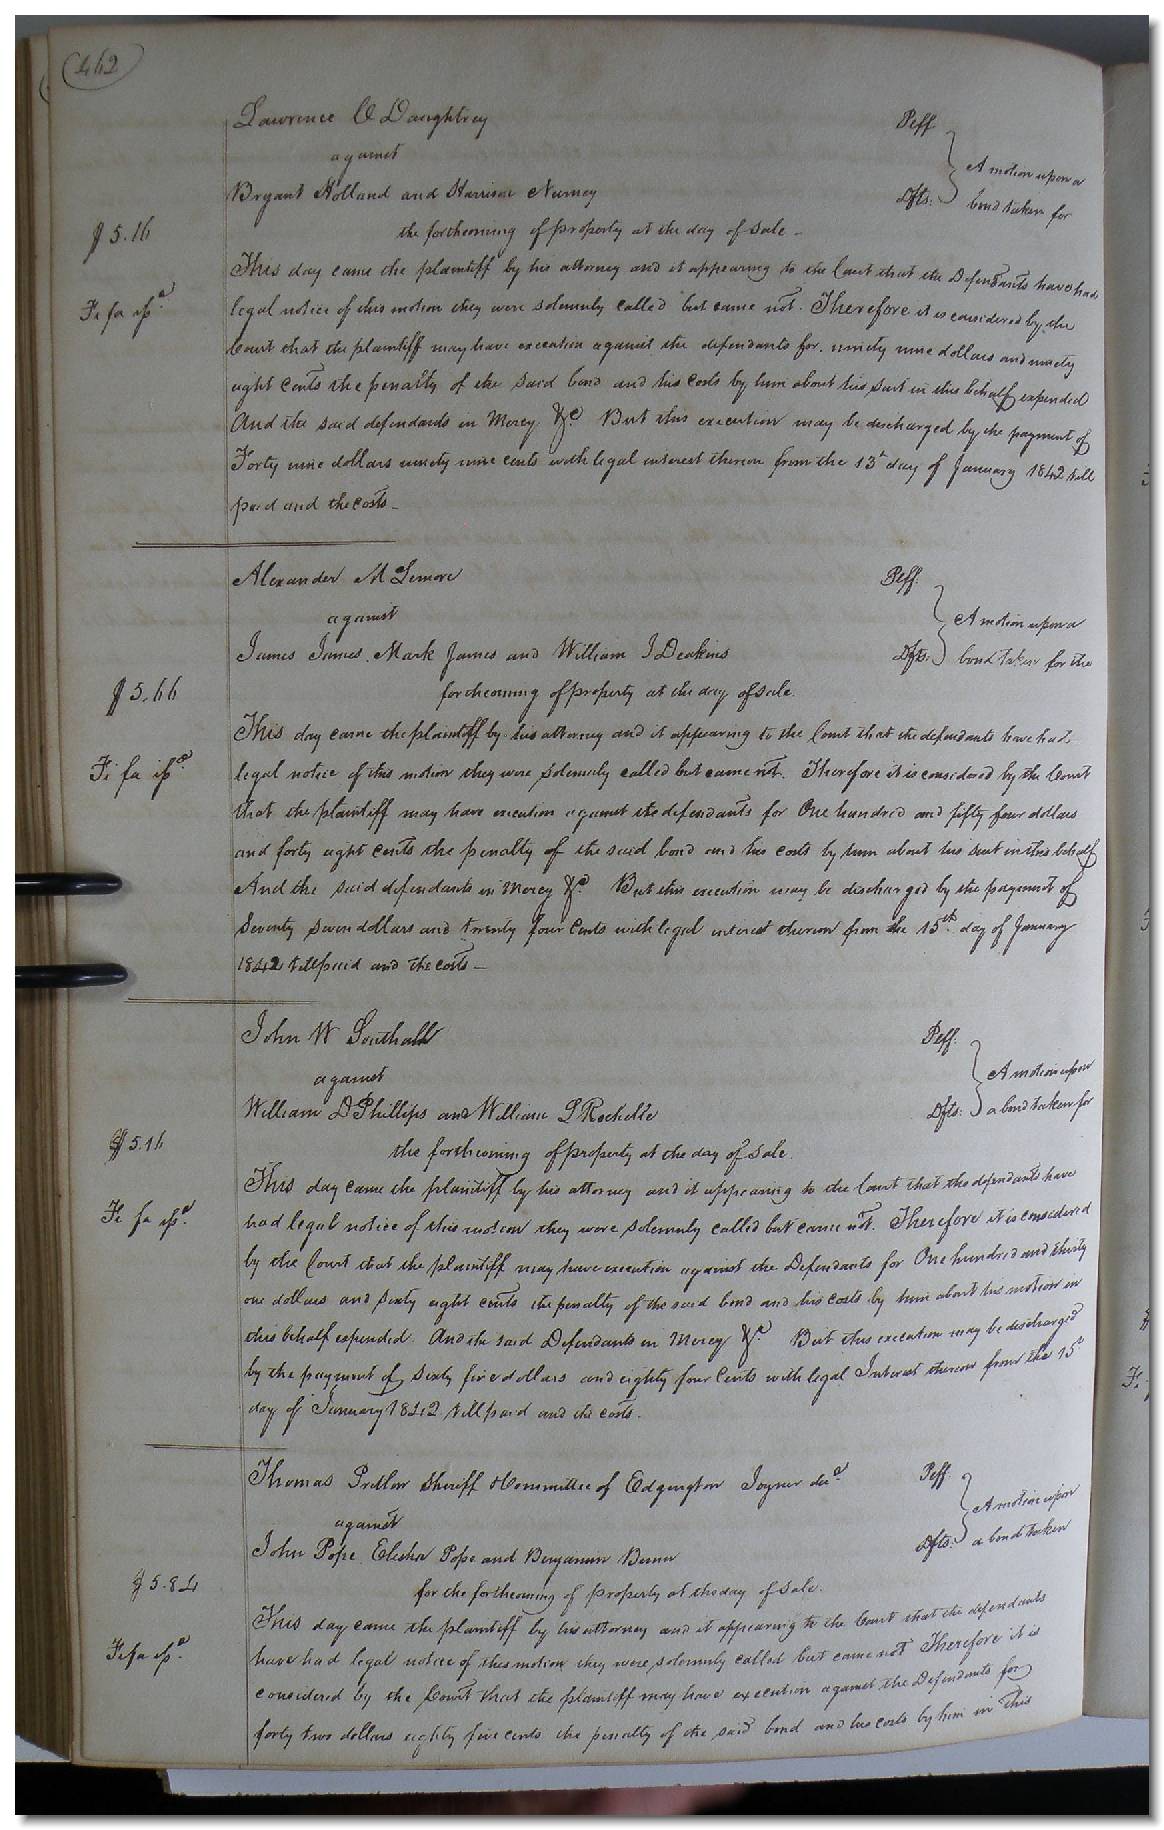 462
Lawrence O Daughtrey Plff
against
Bryant Holland and Harrison Nurney Dfts. A motion upon a bond taken for
$5.16
the forthcoming of property at the day of sale -
This day came the plaintiff by his attorney and it appearing to the Court that the Defendants have had
Fi fa issd
legal notice of this motion they were solemnly called but came not. Therefore it is considered by the
Court that the plaintiff may have execution against the defendants for ninety nine dollars and ninety
eight cents the penalty of the said bond and his costs by him about his suit in this behalf expended
And the said defendants in Mercy &c But this execution may be discharged by the payment of
Forty nine dollars ninety nine cents with legal interest thereon from the 13t day of January 1842 till
paid and the costs -
Alexander McLemore Plff.
against
James James, Mark James and William J Deakins Dfts. A motion upon a bond taken for the
$5.66
forthcoming of property at the day of sale.
This day came the plaintiff by his attorney and it appearing to the Court that the defendants have had
Fi fa issd
legal notice of this motion they were solemnly called but came not. Therefore it is considered by the Court
that the plaintiff may have execution against the defendants for One hundred and fifty four dollars
and forty eight cents the penalty of the said bond and his costs by him about his suit in this behalf
And the said defendants in Mercy &c But this execution may be discharged by the payment of
Seventy seven dollars and twenty four Cents with legal interest thereon from the 15th day of January
1842 till paid and the costs -
John W Southall Plff.
against
William D Phillips and William L Rochelle Dfts. A motion upon a bond taken for
$5.16
the forthcoming of property at the day of sale.
This day came the plaintiff by his attorney and it appearing to the Court that the defendants have
Fi fa issd.
had legal notice of this motion they were solemnly called but came not. Therefore it is considered
by the Court that the plaintiff may have execution against the Defendants for One hundred and thirty
one dollars and sixty eight cents the penalty of the said bond and his costs by him about his motion in
this behalf expended. And the said Defendants in Mercy &c But this execution may be discharged
by the payment of sixty five dollars and eighty four Cents with legal Interest thereon from the 15t
day of January 1842 till paid and the costs.
Thomas Pretlow Sheriff & Committee of Edgington Joyner decd. Plff.
against
John Pope, Elisha Pope and Benjamin Dfts. A motion upon a bond taken
$5.84
for the forthcoming of property at the day of sale.
This day came the plaintiff by his attorney and it appearing to the Court that the defendants
Fi fa issd.
have had legal notice of this motion they were solemnly called but came not Therefore it is
considered by the Court that the plaintiff may have execution against the Defendants for
forty two dollars eighty five cents the penalty of the said bond and his costs by him in this